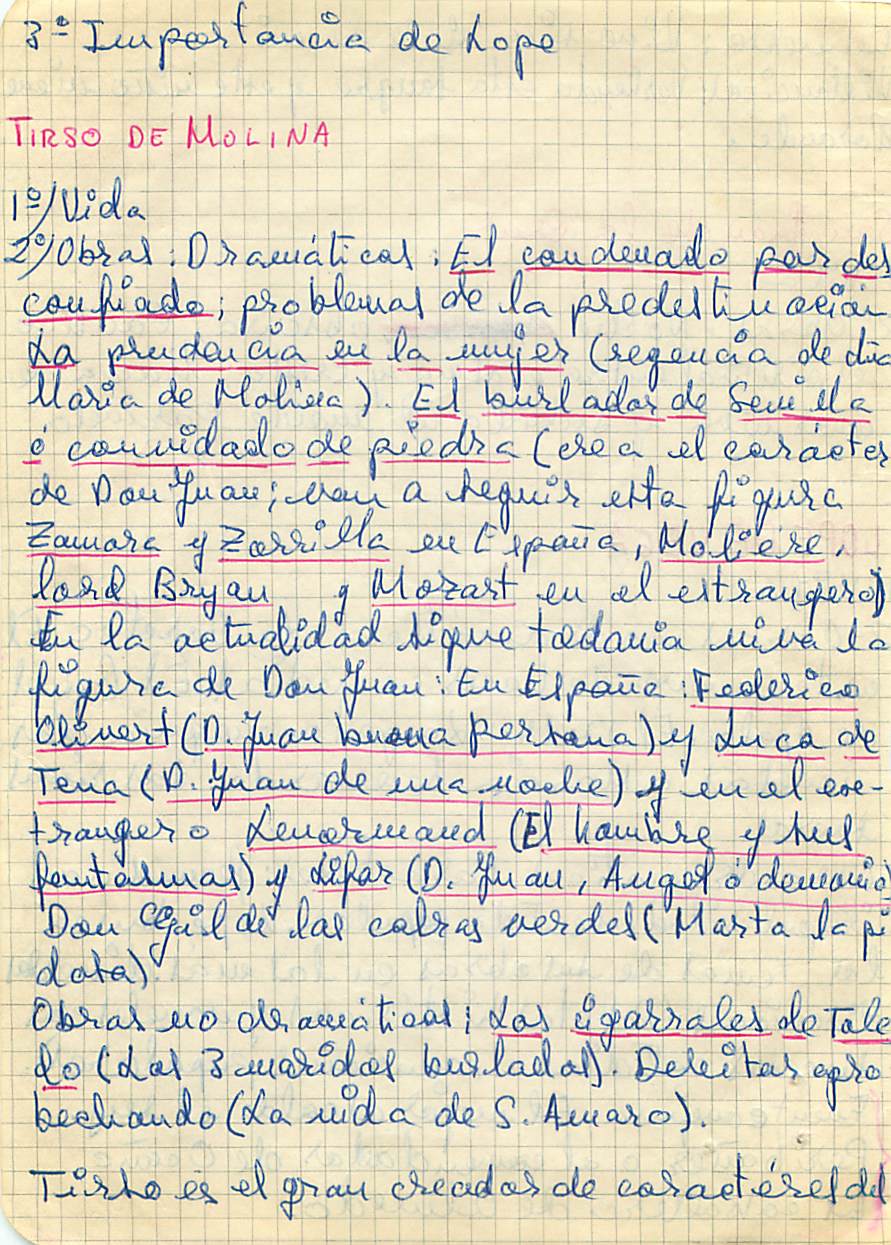 3º Importancia de Lope
TIRSO DE MOLINA
1º/Vida
2º/Obras: Dramáticas: El condenado por des
confiado; problemas de la predestinación
La prudencia en la mujer (regencia de dña
María de Molina). El burlador de Sevilla
ó convidado de piedra (crea el carácter
de Don Juan; van a seguir esta figura
Zamora y Zorrilla en España, Moliére,
lord Bryan y Mozart en el estrangero)
En la actualidad sigue todavia viva la
figura de Don Juan: En España: Federico
Olivert (D. Juan buena persona) y Luca de
Tena (D. Juan de una noche) y en el ex-
trangero Lenormand (El hombre y sus
fantasmas) y Lifar (D. Juan, Angel ó demonio
Don Gil de las calzas verdes (Marta la pi
dosa)
Obras no dramáticas; Los cigarrales de Tole
do (Los 3 maridos burlados). Deleitar apro
bechando (La vida de S. Amaro).
Tirso es el gran creador de caractéres del